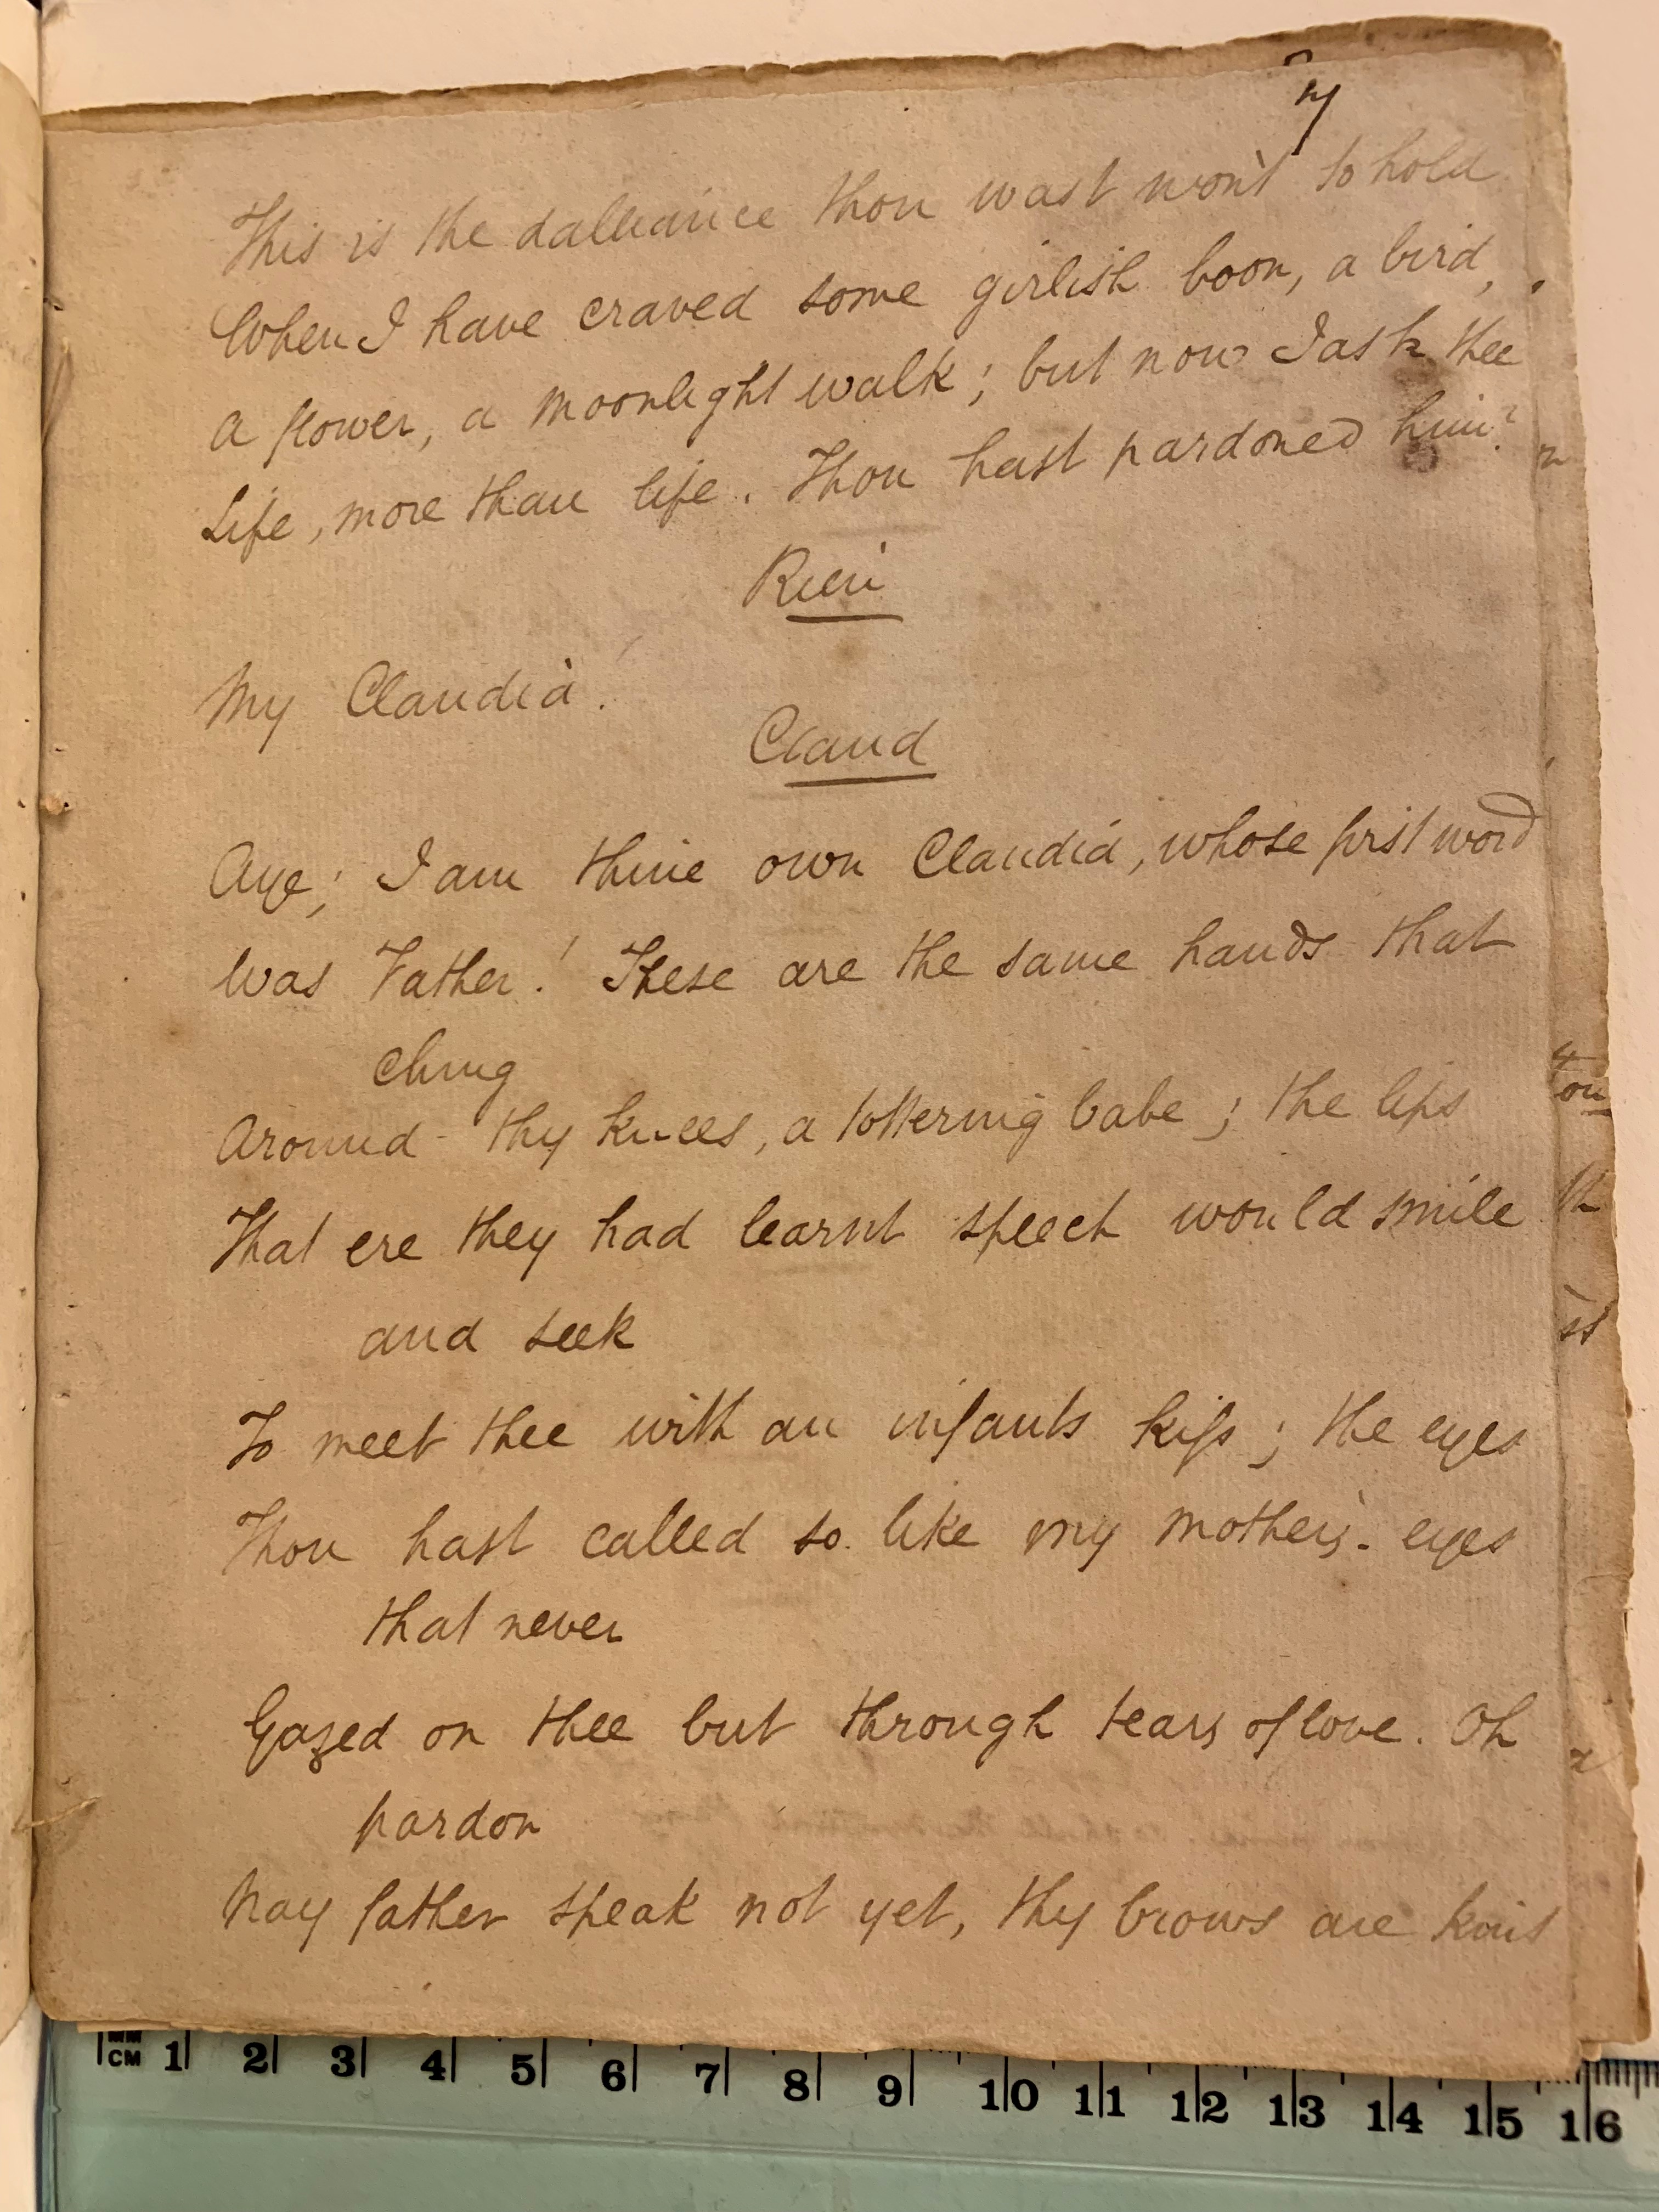 7
This is the dalliance thou wast wont to hold
When I have craved some girlish boon, a bird,
a flower, a moonlight walk; but now I ask thee
Life, more than life. Thou hast pardoned him?
Rien
My Claudia!
Claud
Aye; I am thine own Claudia, whose first word
Was Father! These are the same hands that
clung
Around thy knees, a tottering babe; the lips
That ere they had learnt speech would smile
and seek
To meet thee with an infants kiss; the eyes
Thou hast called so like my mother's. eyes
that never
Gazed on thee but through tears of love. Oh
pardon
Nay father speak not yet, thy brows are knit
MM
CM 1 2 3 4 5 6 7 8 9 10 11 12 13 14 15 16